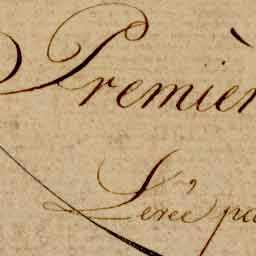 Premièr
Levée pa